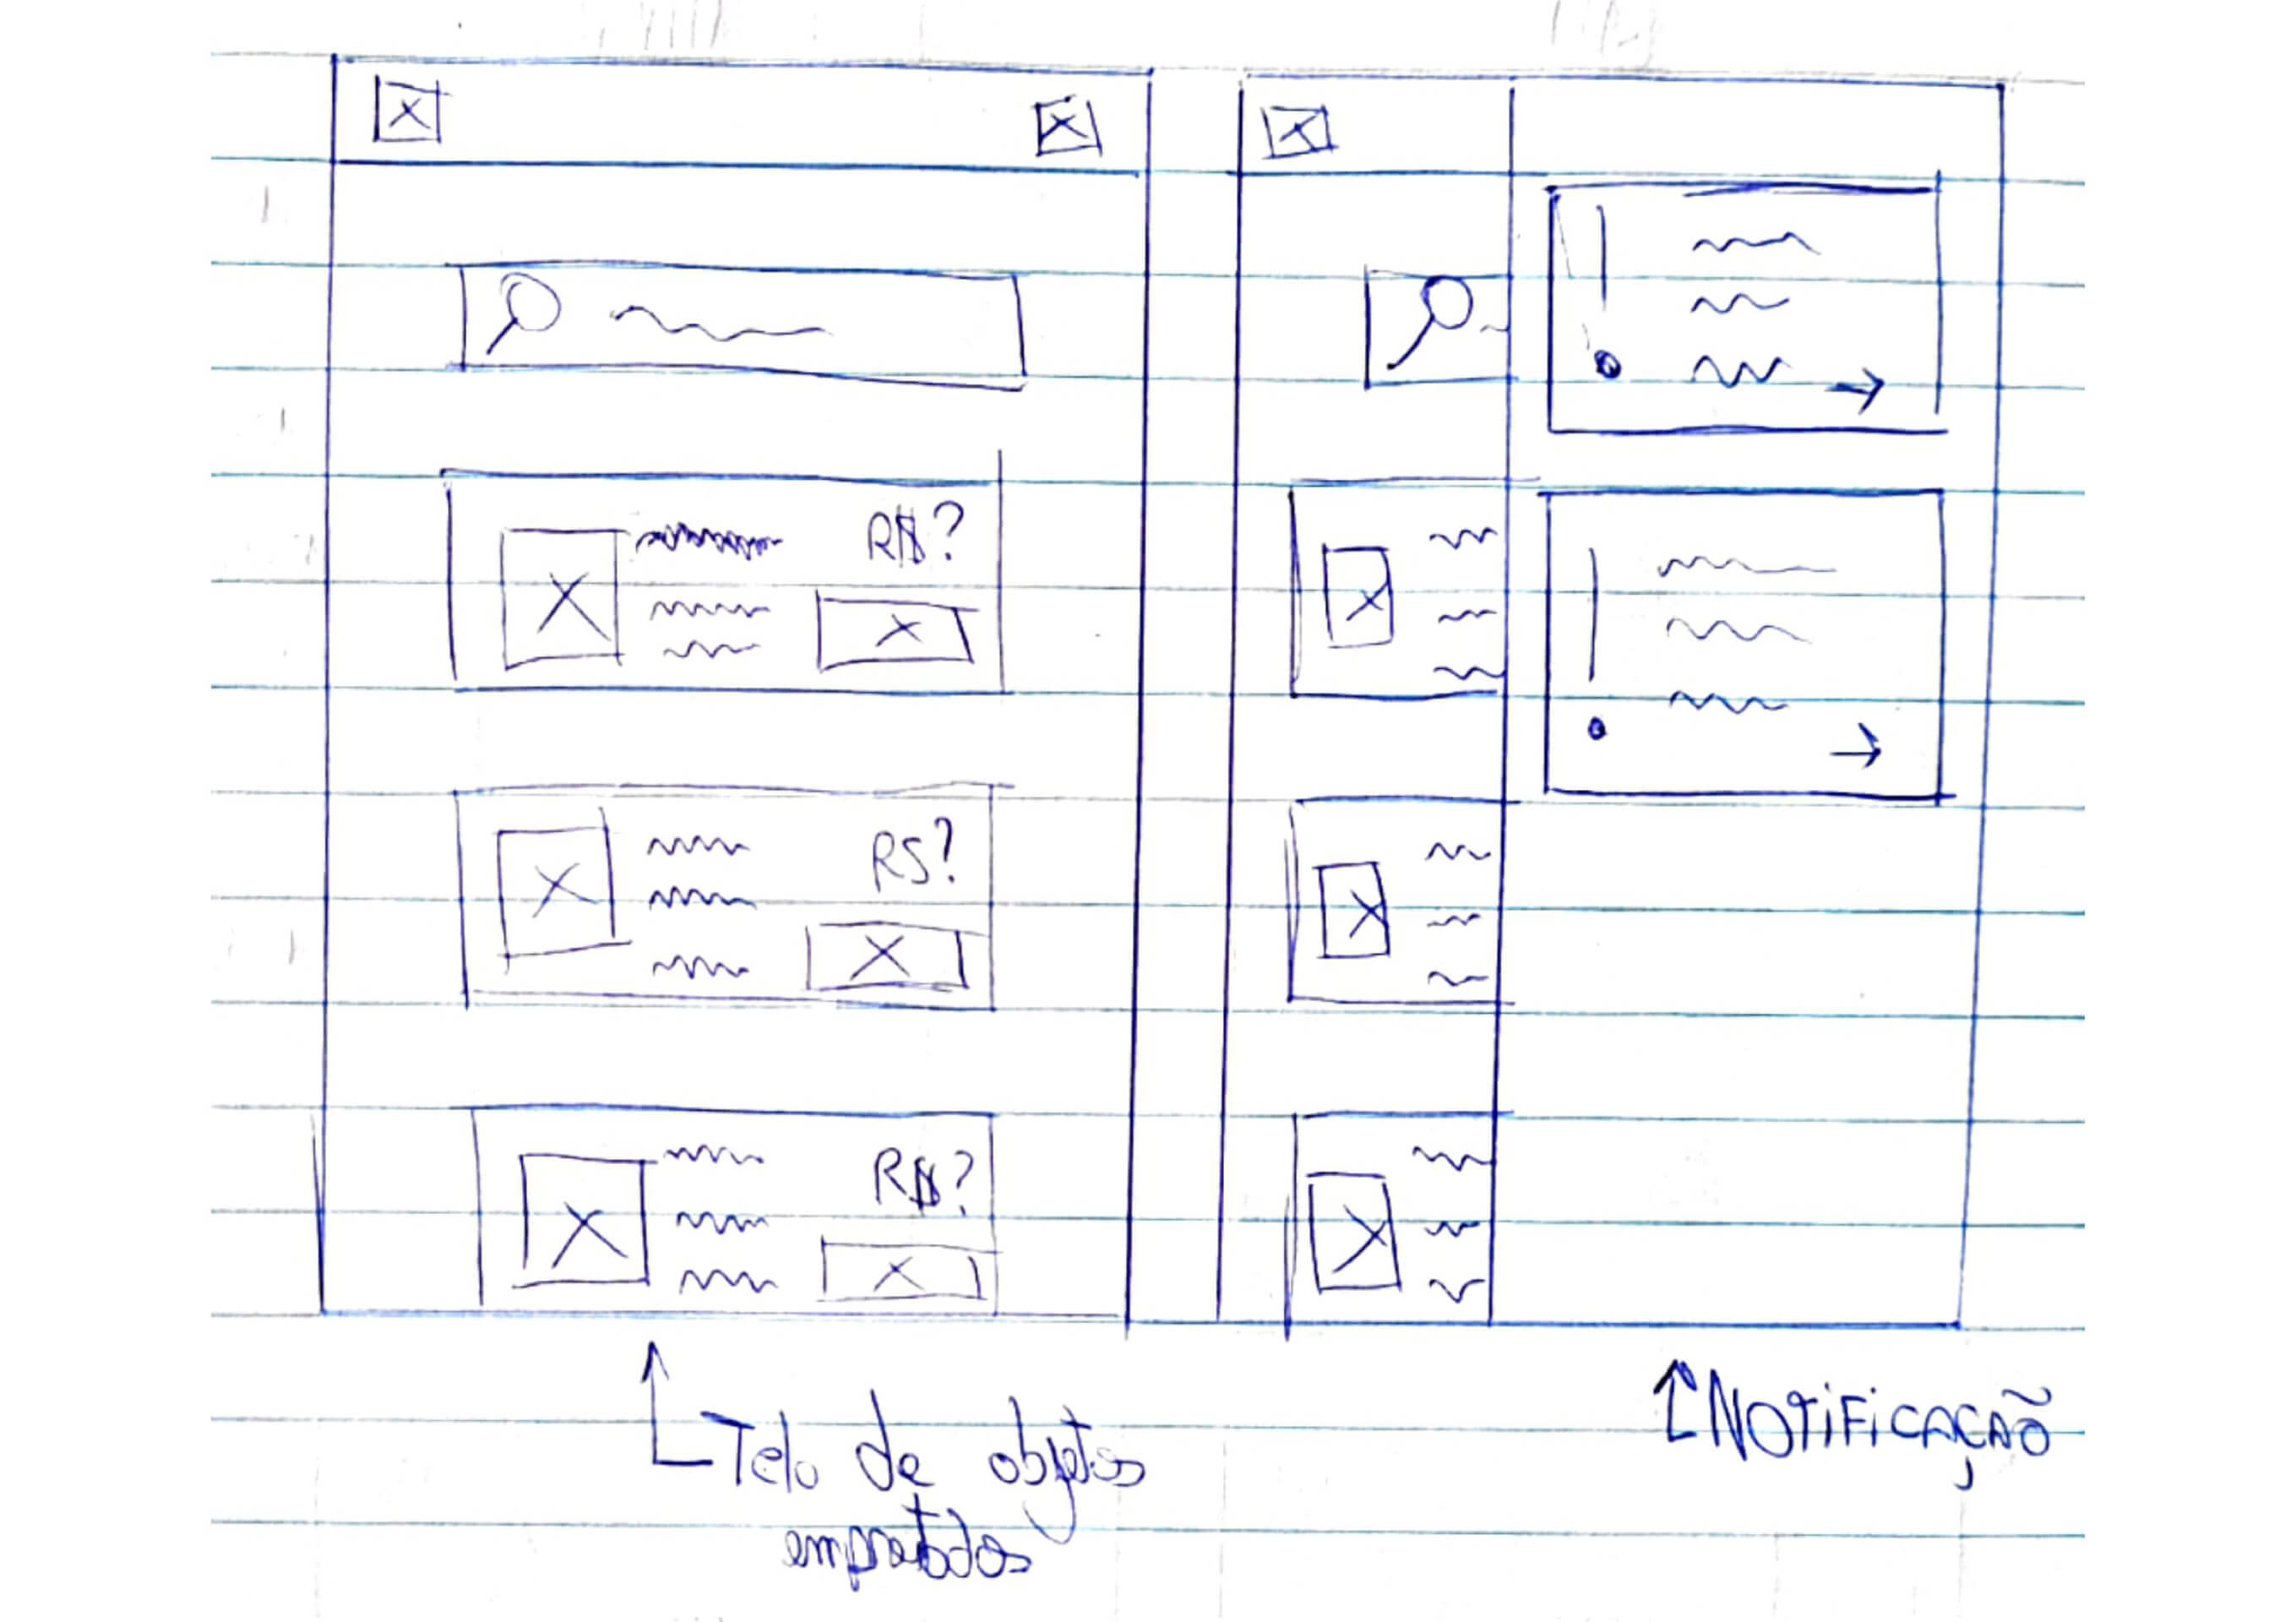 R$?
RS?
R$?
Tela de objetos
emprestados
NOTIFICAÇÃO